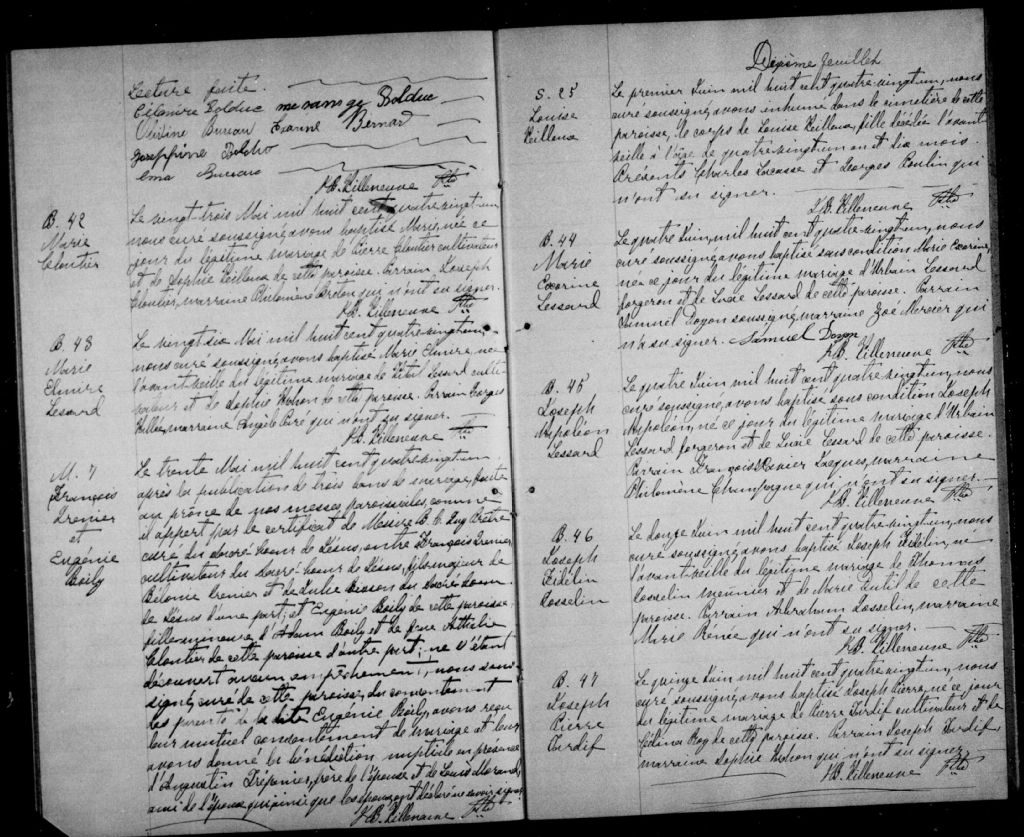 Lecture faite.
Célanire Bolduc Bolduc
Bureau Bernard
Josephine Bolduc
Ema Bureau
J.B. Villeneuve Ptre
B. 42
Marie
Cloutier
Le vingt-trois Mai mil huit cent quatre-vingt-un,
nous curé soussigné, avons baptisé Marie, née ce
jour du légitime mariage de Pierre Cloutier cultivateur
et de Sophie Veilleux de cette paroisse. Parrain, Joseph
Cloutier, marraine Philomène Breton qui n'ont su signer.
J.B. Villeneuve Ptre
B. 43
Marie
Elmire
Lessard
Le vingt-six Mai mil huit cent quatre-vingt-un,
nous curé soussigné, avons baptisé Marie Elmire, née
l'avant-veille du légitime mariage de Vital Lessard culti-
vateur et de Sophie de cette paroisse. Parrain Georges
marraine Angèle Paré qui n'ont su signer.
J.B. Villeneuve Ptre
M. 7
François
Grenier
et
Eugénie
Boily
Le trente Mai mil huit cent quatre-vingt-un
après la publication de trois bans de mariage, faite
au prône de nos messes paroissiales, comme
il appert par le certificat de Messire Prêtre
curé du Sacré-Coeur de Jésus, entre François Grenier,
cultivateur du Sacré-Coeur de Jésus, fils majeur de
Bélonie Grenier et de Luke Bisson du Sacré-Coeur
de Jésus d'une part; et Eugénie Boily de cette paroisse
fille mineure d'Adam Boily et de Athalie
Cloutier, de cette paroisse d'autre part; ne s'étant
découvert aucun empêchement, nous sous-
signé, curé de cette paroisse, du consentement
des parents de la dite Eugénie Boily, avons reçu
leur mutuel consentement de mariage et leur
avons donné la bénédiction nuptiale en présence
d'Augustin Trépanier, frère de l'épouse et de Louis Morand,
ami de l'époux qui ainsi que les époux ont déclaré ne savoir signer
J.B. Villeneuve Ptre
Dixième feuillet
S. 25
Louise
Veilleux
Le premier Juin mil huit cent quatre-vingt-un, nous
curé soussigné, avons inhumé dans le cimetière de cette
paroisse, le corps de Louise Veilleux, fille décédée l'avant
veille à l'âge de quatre-vingt-un an et dix mois.
Présents Charles Lacasse et Georges Poulin qui
n'ont su signer.
J.B. Villeneuve Ptre
B. 44
Marie
Exorine
Lessard
Le quatre Juin, mil huit cent quatre-vingt-un, nous
curé soussigné, avons baptisé sous condition Marie Exorine,
née ce jour du légitime mariage d'Urbain Lessard
forgeron et de Lucie Lessard de cette paroisse. Parrain
Samuel Doyon soussigné, marraine Zoé Mercier qui
n'a su signer. Samuel Doyon
J.B. Villeneuve Ptre
B. 45
Joseph
Napoléon
Lessard
Le quatre Juin mil huit cent quatre-vingt-un, nous
curé soussigné, avons baptisé sous condition Joseph
Napoléon, né ce jour du légitime mariage d'Urbain
Lessard forgeron et de Lucie Lessard de cette paroisse.
Parrain François Xavier Jacques, marraine
Philomène Champagne qui n'ont su signer.
J.B. Villeneuve Ptre
B. 46
Joseph
Fidélin
Gosselin
Le douze Juin mil huit cent quatre-vingt-un, nous
curé soussigné, avons baptisé Joseph Fidélin, né
l'avant-veille du légitime mariage de Thomas
Gosselin meunier et de Marie Dutil de cette
paroisse. Parrain Abraham Gosselin, marraine
Marie qui n'ont su signer.
J.B. Villeneuve Ptre
B. 47
Joseph
Pierre
Tardif
Le quinze Juin mil huit cent quatre-vingt-un, nous
curé soussigné, avons baptisé Joseph Pierre, né ce jour
du légitime mariage de Pierre Tardif cultivateur et de
Célina Roy de cette paroisse. Parrain Joseph Tardif,
marraine Sophie qui n'ont su signer.
J.B. Villeneuve Ptre